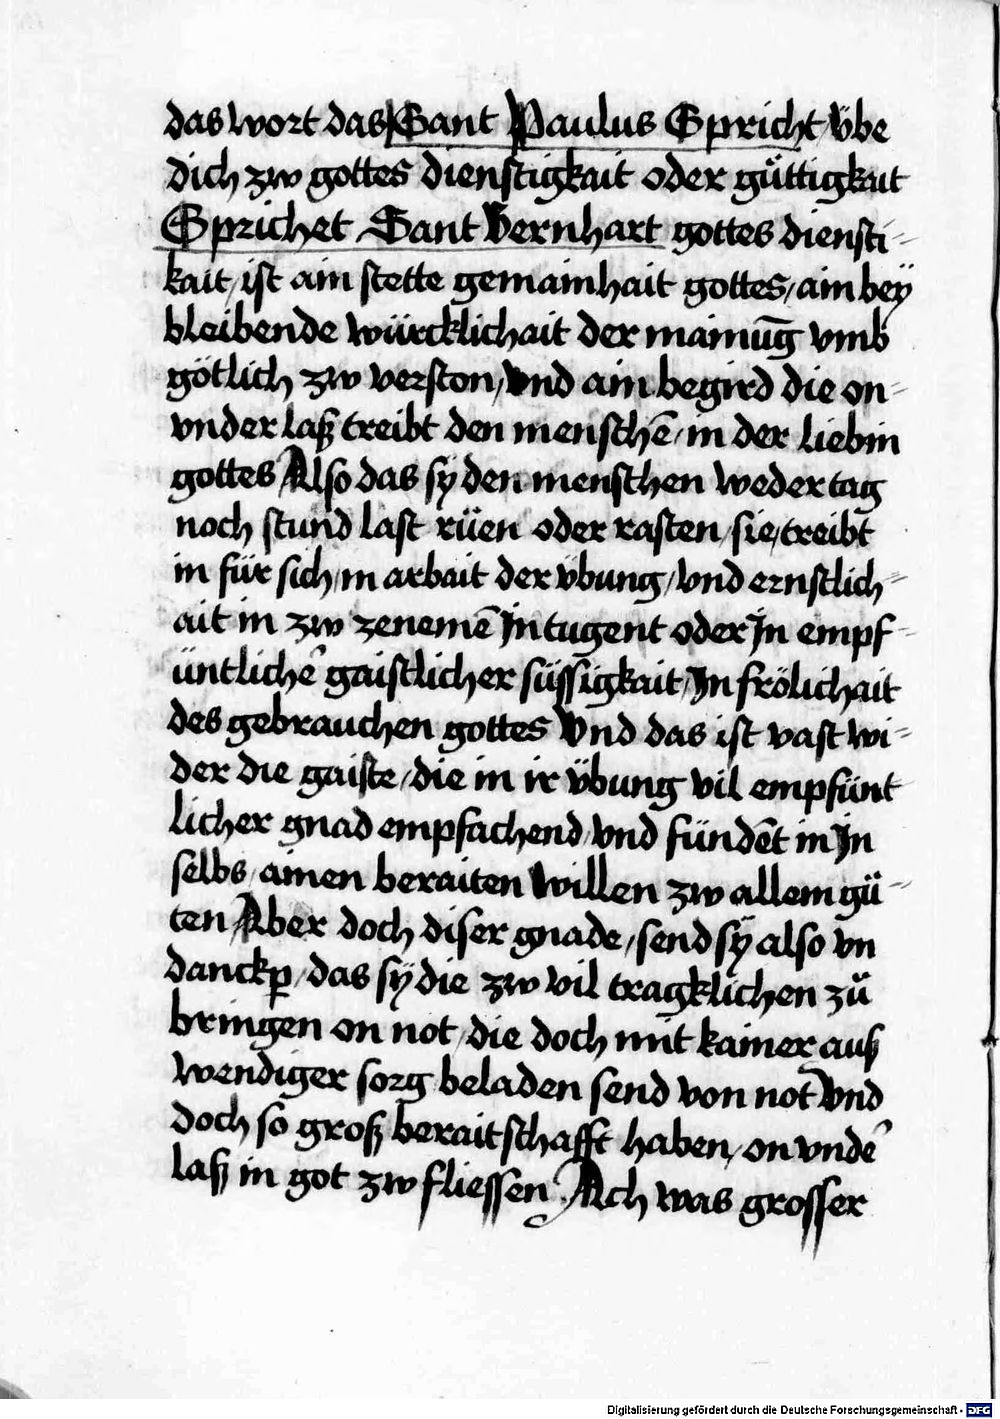 das wort das Sant Paulus Spricht / übe
dich zw gottes dienstigkait oder güttigkait
Sprichet Sant Bernhart gottes diensti-
kait / ist ain stette gemainhait gottes / ain bey
bleibende würcklichait der mainūg vmb
götlich zw verston / vnd ain begird die on-
vnder laß treibt den menschē / in der liebin
gottes Also das sy den menschen weder tag
noch stund last rüen oder rasten / sie / treibt
in für sich / in arbait der übung / vnd ernstlich-
ait in zw zenemē In tugent oder In empf-
üntlichē gaistlicher süssigkait / In frölichait
des gebrauchen gottes Vnd das ist vast wi-
der die gaiste / die in ir übung vil empfünt
licher gnad empfachend / vnd fündēt in In
selbs / ainen beraiten willen zw allem gü-
ten Aber doch diser gnade / send sÿ also vn
danckꝑ / das sÿ die zw vil tragklichen zü
bringen on not / die doch mit kainer auß
wendiger sorg beladen send von not Vnd
doch so groß beraitschafft haben / on vnde͛
laß in got zw fliessen Ach was grosser
Digitalisierung gefördert durch die Deutsche Forschungsgemeinschaft - DFG